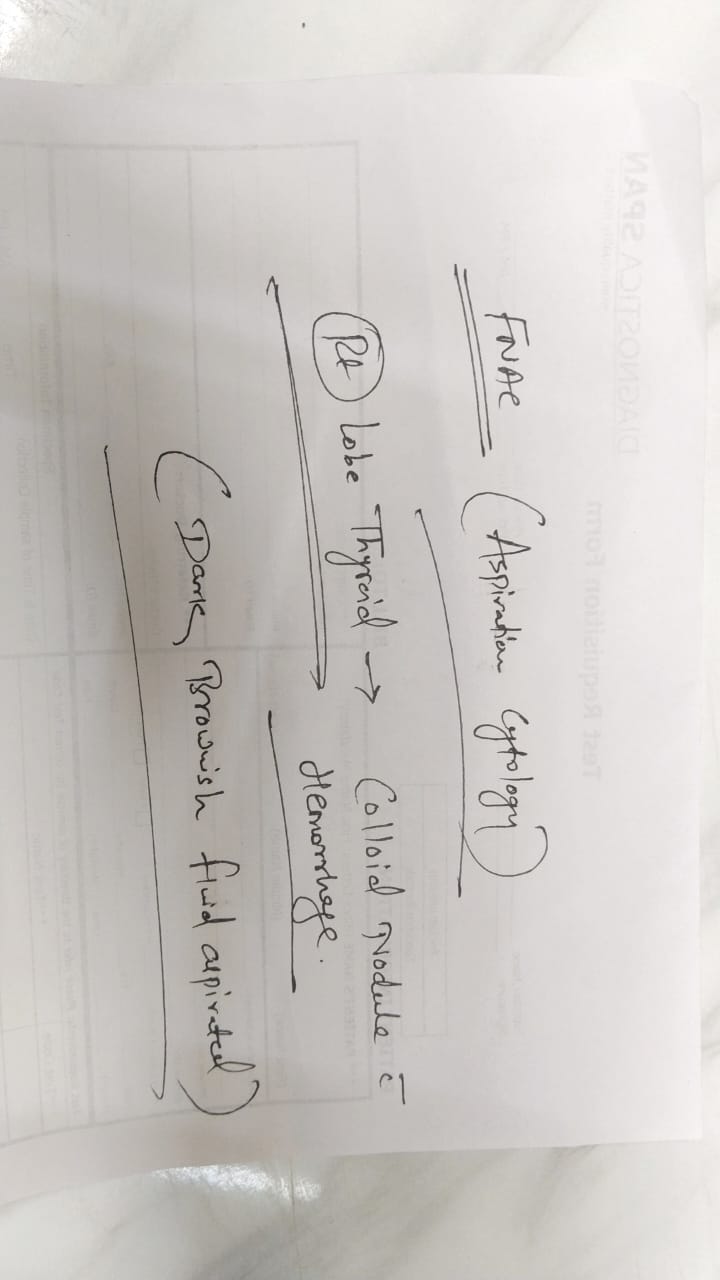 FNAC (Aspiration Cytology)
Rt Lobe Thyroid → Colloid Nodule c̄
Hemorrhage.
(Dark, Brownish fluid aspirated)
DIAGNOSTICA SPAN
Test Requisition Form